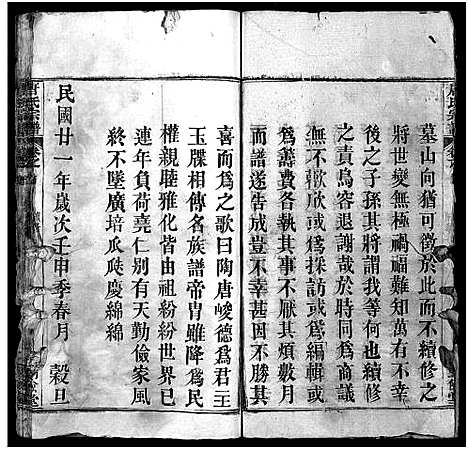 墓山向猶可徵於此而不續修之
將世變無極禍福難知萬有不幸
後之子孫其將謂我等何也續修
之責烏容退謝哉於時同爲商議
無不歡欣或爲採訪或爲編輯或
爲校讐各執其事不厭其煩數月
而譜遂告成豈不幸甚因不勝其
喜而爲之歌曰陶唐峻德爲君王
玉牒相傳名族譜帝冑雖降爲民
權親睦雅化皆由祖紛紛世界已
連年負荷堯仁别有天勤儉家風
終不墜廣培瓜瓞慶綿綿
民國廿一年歲次壬申季春月 穀旦
唐氏宗譜